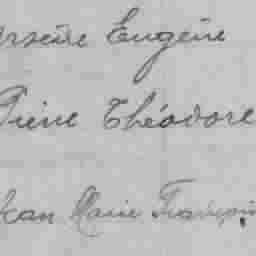 Arsène Eugène
Pierre Théodore
Jean Marie François